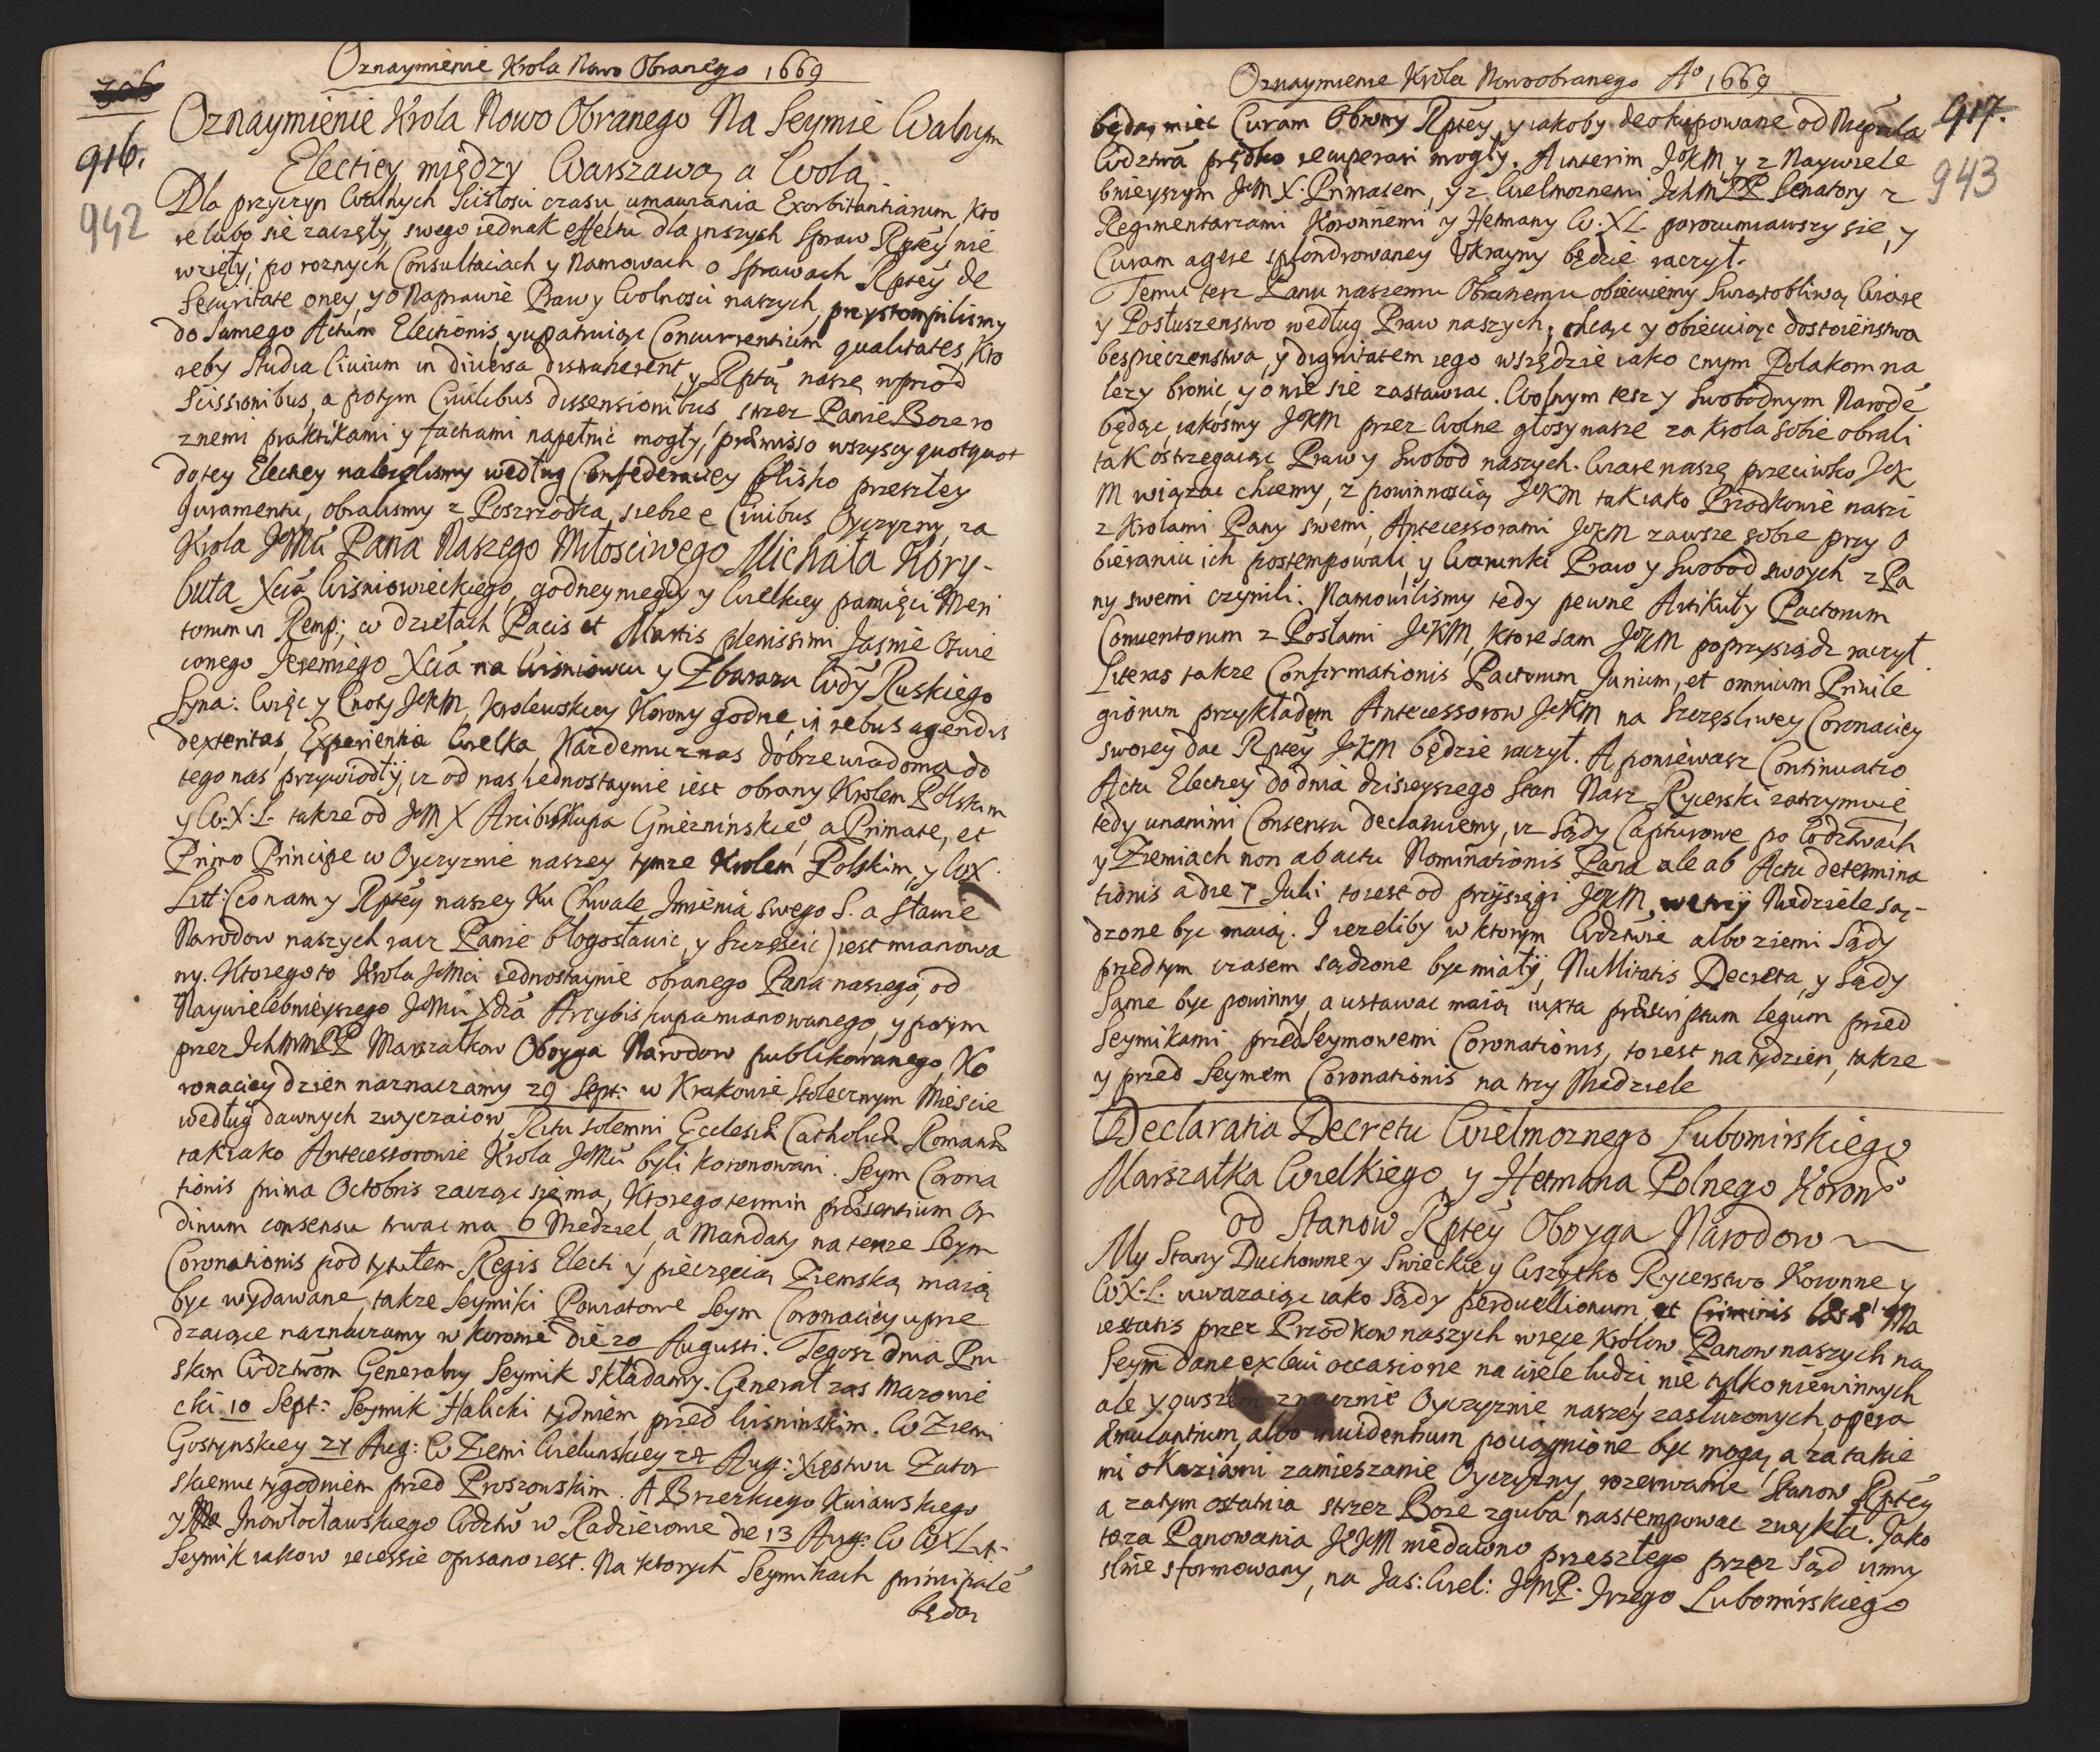 Oznaymienie Krola Nowo Obranego 1669
306
916.
942
Oznaymienie Krola Nowo Obranego Na Seymie Walnym
Electiey między Warszawą a Wolą.
Dla przyczyn Walnych Scisłosci czasu umawiania Exorbitantiarum, kto
re lubo się zaczęły, swego iednak effectu dla inszych Spraw Rptey nie
wzięły; po roznych Consultaciach y Namowach o Sprawach Rptey de
Securitate oney, y o Naprawie Praw y Wolnosci naszych, przystompilismy
do Samego Actum Electionis, y upatruiąc Concurrentium qualitates, kto
reby Studia Civium in diversa distraherent, y Rptą naszę wprzod
Scissionibus, a potym Civilibus dissensionibus, strzez Panie Boze ro
znemi praktikami y fachami napełnić mogły, præmisso wszyscy quotquot
do tey Electiey nalezelismy według Confederaciey blisko przeszłey
Juramentu, obralismy z Poszrzodka siebie e Civibus Oyczyzny, za
Krola JeMci Pana Naszego Miłosciwego Michała Kory-
buta Xcia Wisniowieckiego, godney niegdy y Wielkiey pamięci Meri
torum in Remp; w dziełach Pacis et Martis plenissimi Jasnie Oswie
conego Jeremiego Xcia na Wisniowcu y Zbarazu Wdy Ruskiego
Syna: Więc y Cnoty JeKM, Krolewskiey Korony godne, in rebus agendis
dexteritas, Experientia Wielka, Kazdemu z nas dobrze wiadoma, do
tego nas przywiodły, iz od nas iednostaynie iest obrany Krolem Polskim
y W.X.L. takze od JeM X Arcibiskupa Gnieznińskieo, a Primate, et
Primo Principe w Oyczyznie naszey tymze Krolem Polskim, y WX
Litt: (co nam y Rptey naszey ku Chwale Imienia swego S. a sławie
Narodow naszych racz Panie błogosławic, y Szczęscic) iest mianowa
ny. Ktorego to Krola JeMci iednostaynie obranego Pana naszego, od
Naywielebnieyszego JeMci Xdza Arcybiskupa mianowanego, y potym
przez IchMMPP Marszałkow Oboyga Narodow publikowanego, Ko
ronaciey dzien naznaczamy 29 Sept: w Krakowie Stołecznym Miescie
według dawnych zwyczaiow, Ritu solemni Ecclesiæ Catholicæ Romanæ
tak iako Antecessorowie Krola JeMci byli koronowani. Seym Corona
tionis prima Octobris zacząc się ma, Ktorego termin præsentium Or
dinum consensu trwac ma 6 Niedziel, a Mandaty na tenze Seym
Coronationis pod tytułem Regis Electi y pieczęcią Ziemską maią
byc wydawane, takze Seymiki Powiatowe Seym Coronaciey uprze
dzaiące naznaczamy w koronie die 20 Augusti. Tegosz dnia Pru
skim Wdztwom Generalny Seymik składamy. Generał zas Mazowie
cki 10 Sept: Seymik Halicki tydniem przed Wisninskim. W Ziemi
Gostynskiey 27 Aug: W Ziemi Wielunskiey 28 Aug: Xięstwu Zator
skiemu tygodniem przed Proszowskim. A Brzeskiego Kuiawskiego
y Inowłocławskiego Wdztw w Radzieiowie die 13 Aug: W WX Lit:
Seymik iako w recessie opisano iest. Na ktorych Seymikach principale
będą
Oznaymienie Krola Nowoobranego Ao 1669
917.
943
będą, miec Curam Obrony Rptey, y iakoby deokupowane od Niepřila
Wdztwa prędko recuperari mogły. A interim JeKM y z Naywiele
bnieyszym JeM X. Primasem, y z Wielmoznemi IchMPP Senatory z
Regimentarzami Koronnemi y Hetmany W.XL. porozumiawszy się, y
Curam agere splondrowaney Vkrayny będzie raczył.
Temu tesz Panu naszemu Obranemu obiecuiemy Swiątobliwą Wiarę
y Posłuszenstwo według Praw naszych, chcąc y obiecuiąc dostoieństwa
bespieczenstwa, y dignitatem iego wszędzie iako cnym Polakom na
lezy bronic, y o nie się zastawiac. Wolnym tesz y Swobodnym Narodē
będąc, iakośmy JeKM przez Wolne głosy nasze za Krola sobie obrali
tak ostrzegaiąc Praw y Swobod naszych. Wiarę naszę przeciwko JeK
M wiązac chcemy, z powinnoscią JeKM tak iako Przodkowie naszi
z Krolami Pany swemi, Antecessorami JeKM zawsze sobie przy O
bieraniu ich postempowali, y Warunki Praw y Swobod swoych z Pa
ny swemi czynili. Namowilismy tedy pewne Artikuły Pactorum
Conventorum z Posłami JeKM, ktore sam JeKM poprzysiądz raczył.
Literas takze Confirmationis Pactorum Iurium, et omnium Privile
giorum przykładem Antecessorow JeKM na Szczęsliwey Coronaciey
swoiey dac Rptey JeKM będzie raczył. A poniewasz Continuatio
Actu Electiey do dnia dzisieyszego Stan Nasz Rycerski zatrzymuie
tedy unanimi Consensu declaruiemy, iz Sądy Capturowe po Wdztwach
y Ziemiach non ab actu Nominationis Pana ale ab Actu determina
tionis a die 7 Juli to iest od przysięgi JeKM, w trzy Niedziele są-
dzone byc maią. I iezeliby w ktorym Wdztwie albo ziemi Sądy
przed tym czasem sądzone byc miały, Nullitatis Decreta, y Sądy
Same byc powinny, a ustawac maią iuxta præscriptum legum przed
Seymikami przedSeymowemi Coronationis, to iest na tydzien, takze
y przed Seymem Coronationis na trzy Niedziele
Declaratia Decretu Wielmoznego Lubomirskiego
Marszałka Wielkiego, y Hetmana Polnego Korono
od Stanow Rptey Oboyga Narodow
My Stany Duchowne y Swieckie, y Wszytko Rycerstwo Koronne y
WX.L. uwazaiąc iako Sądy perduellionum, et Criminis læsæ Ma
iestatis przez Przodkow naszych więce Krolow Panow naszych na
Seym dane ex levi occasione na wiele ludzi, nie tylko niewinnych
ale y owszem znacznie Oyczyznie naszey zasłuzonych, opera
æmulantium, albo invidentium pociągnione byc mogą, a za takie
mi okaziami zamieszanie Oyczyzny, rozerwanie Stanow Rptey
a zatym ostatnia strzez Boze zguba nastempowac zwykła. Jako
teza Panowania JeKM niedawno przeszłego przez Sąd umy
slnie sformowany, na Jas: Wiel: JeMP. Jrzego Lubomirskiego